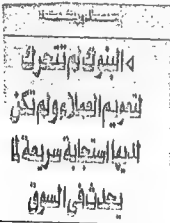 البنوك لم تتحرك
لتعويم العملاء ولم تكن
لديها استجابة سريعة لما
يحدث في السوق